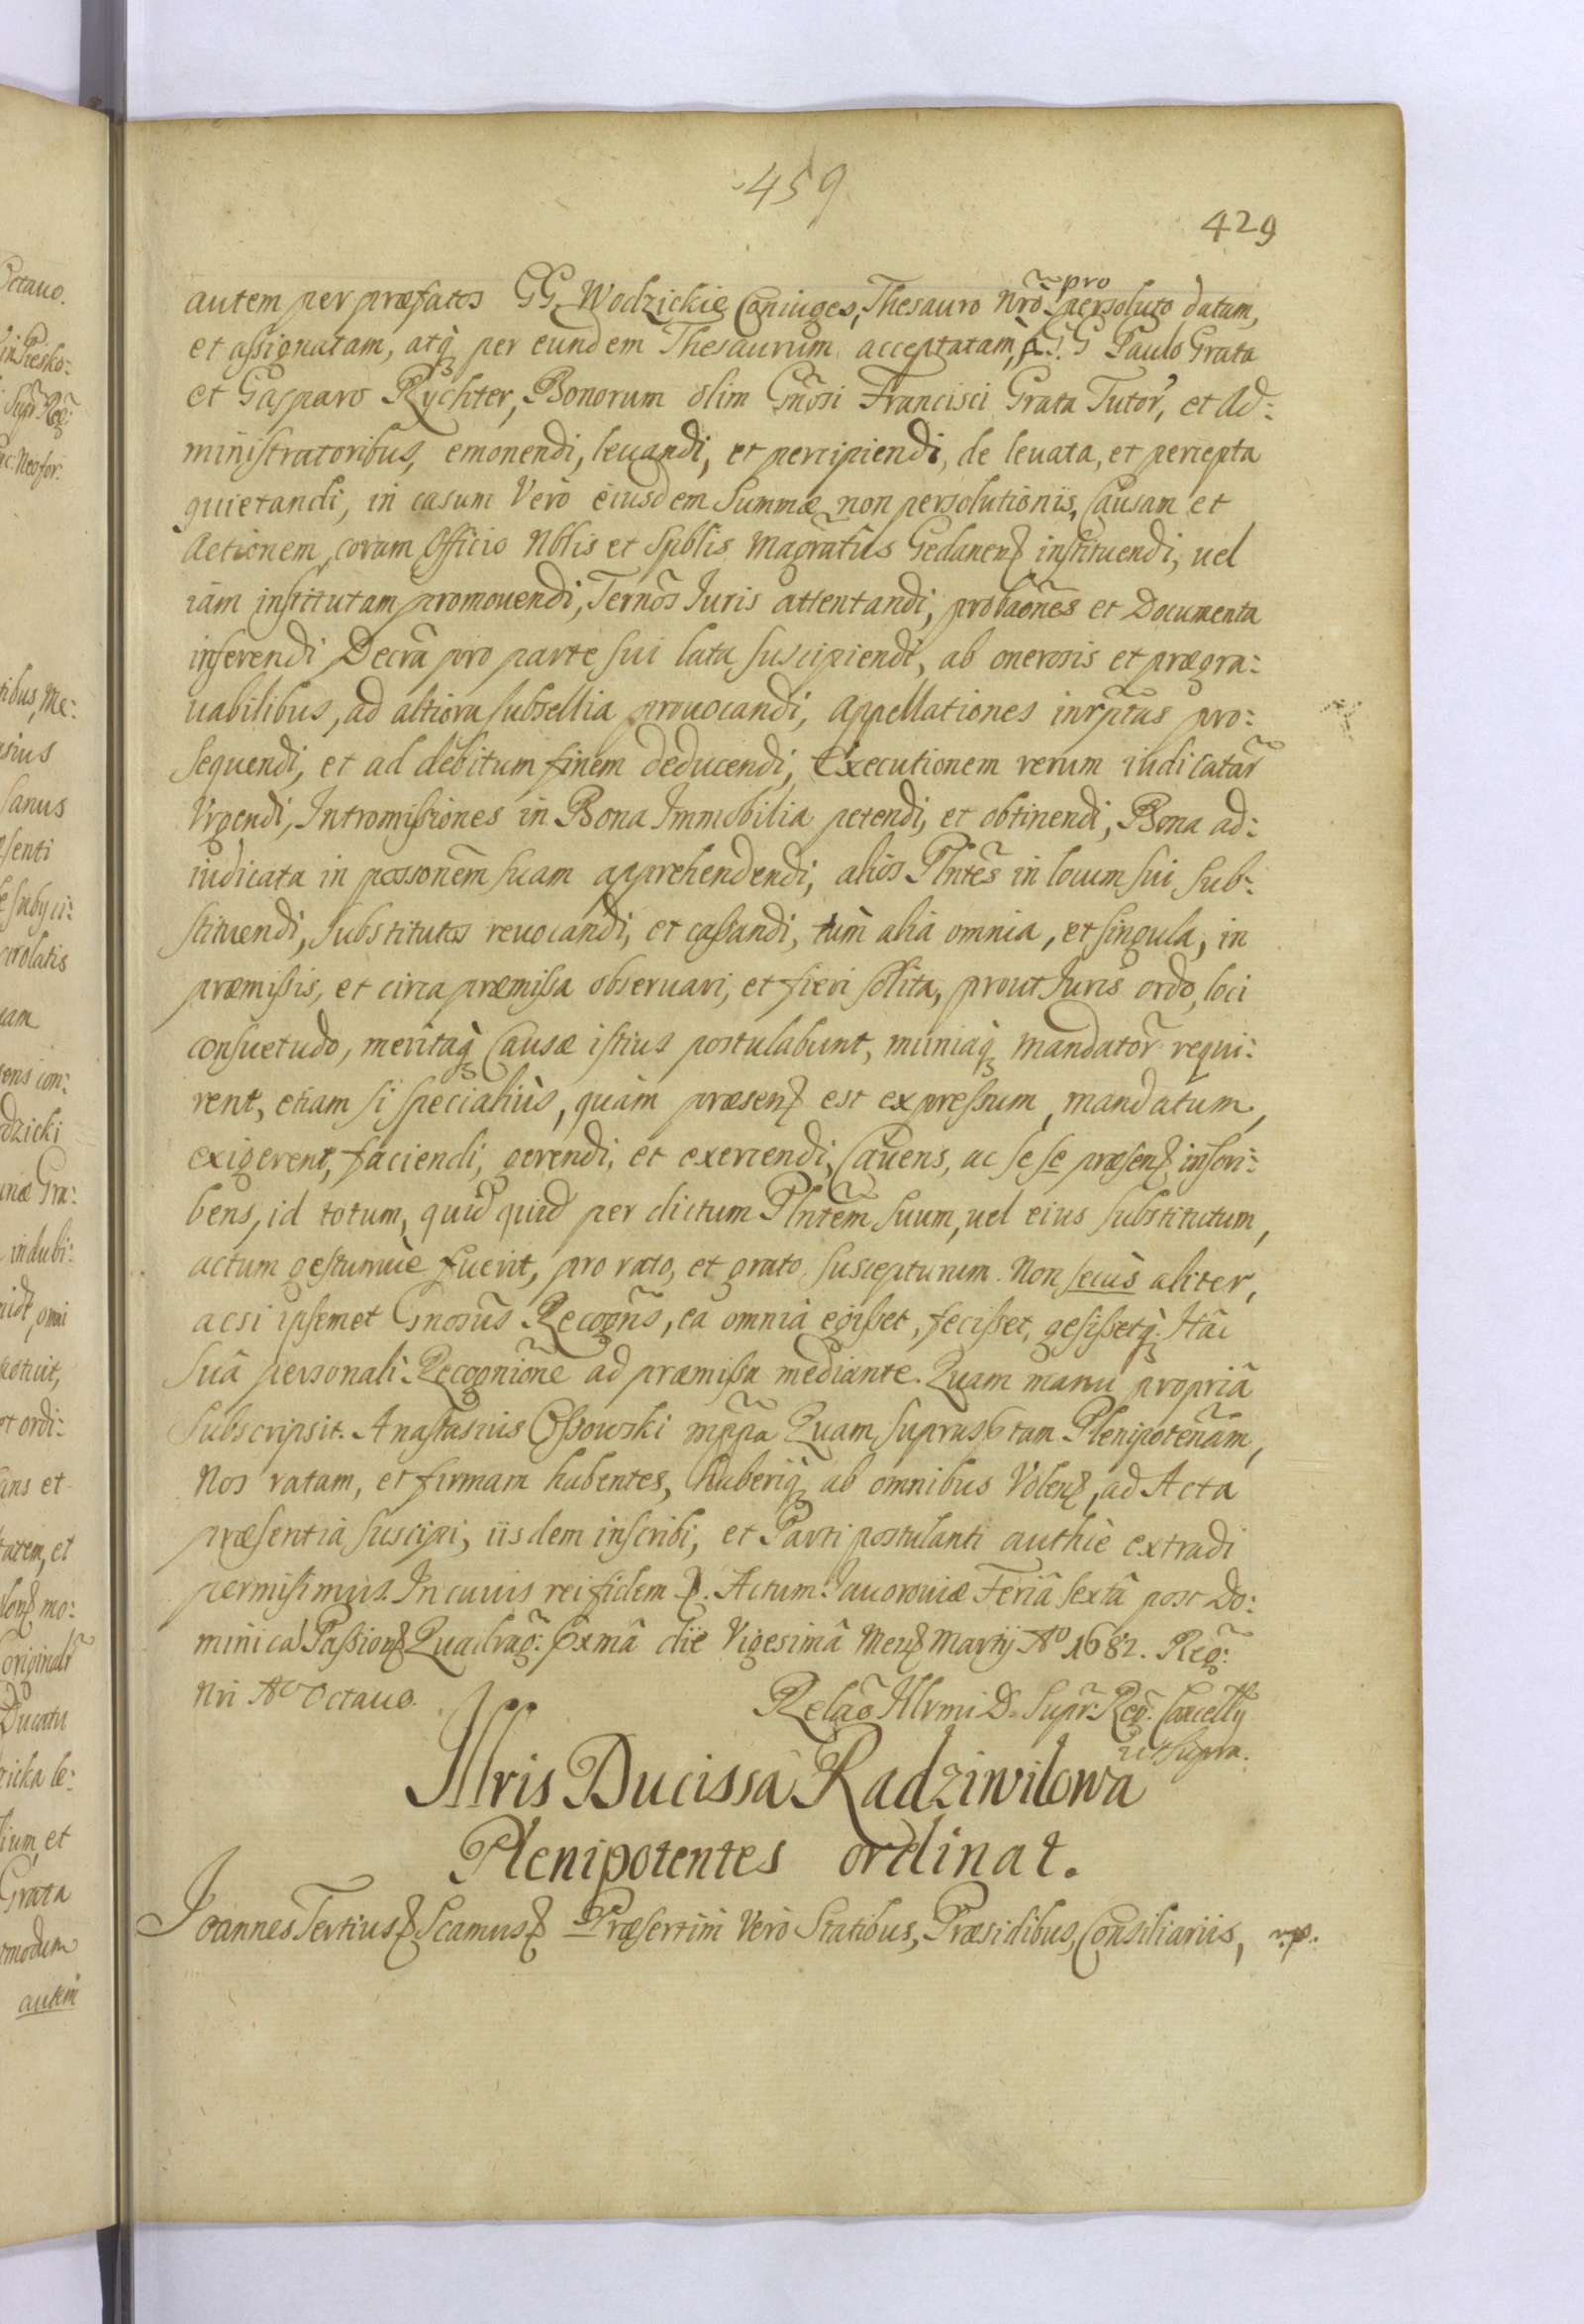 459
429
autem per præfatos GG. Wodzickie Coniuges, Thesauro Nrõ pro persoluto datam,
et assignatam, atq. per eundem Thesaurum acceptatam, à G.G Paulo Grata
et Gasparo Rychter, Bonorum olim Gñosi Francisci Grata Tutor̃, et Ad:
ministratoribus, emonendi, leuandi, et percipiendi, de leuata, et percepta
quietandi, in casum Verò eiusdem Summæ non persolutionis, Causam et
Actionem, coram Officio Nblis et Spblis Magratûs Gedanens instituendi, uel
iam institutam promouendi, Terños Iuris attentandi, probaõnes et Documenta
inferendi Decrã pro parte sui lata suscipiendi, ab onerosis et prægra:
uabilibus, ad altiora subsellia prouocandi, Appellationes inrptas pro:
sequendi, et ad debitum finem deducendi, Executionem rerum iudicatar̃
Vrgendi, Intromissiones in Bona Immobilia petendi, et obtinendi, Bona ad:
iudicata in possonem̃ suam apprehendendi, alios Plntẽs in locum sui sub:
stituendi, substitutos reuocandi, et cassandi, tum alia omnia, et singula, in
præmissis, et circa præmissa obseruari, et fieri solita, prout Iuris ordo, loci
consuetudo, meritaq. Causæ istius postulabunt, muniaq. mandator̃ requi:
rent, etiam si specialiùs, quàm præsens est expressum, mandatum,
exigerent, faciendi, gerendi, et exercendi, Cauens, ac se se præsens inscri:
bens, id totum, quid quid per dictum Plntẽm suum, uel eius substitutum,
actum gestumuè fuerit, pro rato, et grato suscepturum. Non secùs aliter,
acsi ipsemet Gnosus Recogñs, ea omnia egisset, fecisset, gesissetq. Hâc
suâ personali Recognĩone ad præmissa mediante. Quam manu propriâ
subscripsit. Anastasius Ossowski mppa Quam suprastam Plenipoteñam,
Nos ratam, et firmam habentes, haberiq. ab omnibus Volens, ad Acta
præsentia suscipi, iisdem inscribi, et Parti postulanti authiè extradi
permisimus. In cuius rei fidem. Actum Iauorouiæ Feriâ sextâ post Do:
minicã Passions Quadrag: pxmâ die Vigesimâ Mens Martij Ao 1682. Reg:
Nri Ao Octauo.
Relaõ Illrmi D. Supr. Reg. Cancellÿ
ut supra.
Illris Ducissa Radziwilowa
Plenipotentes ordinat.
Ioannes Tertius Scamus Præsertim Verò Statibus, Præsidibus, Consiliariis,